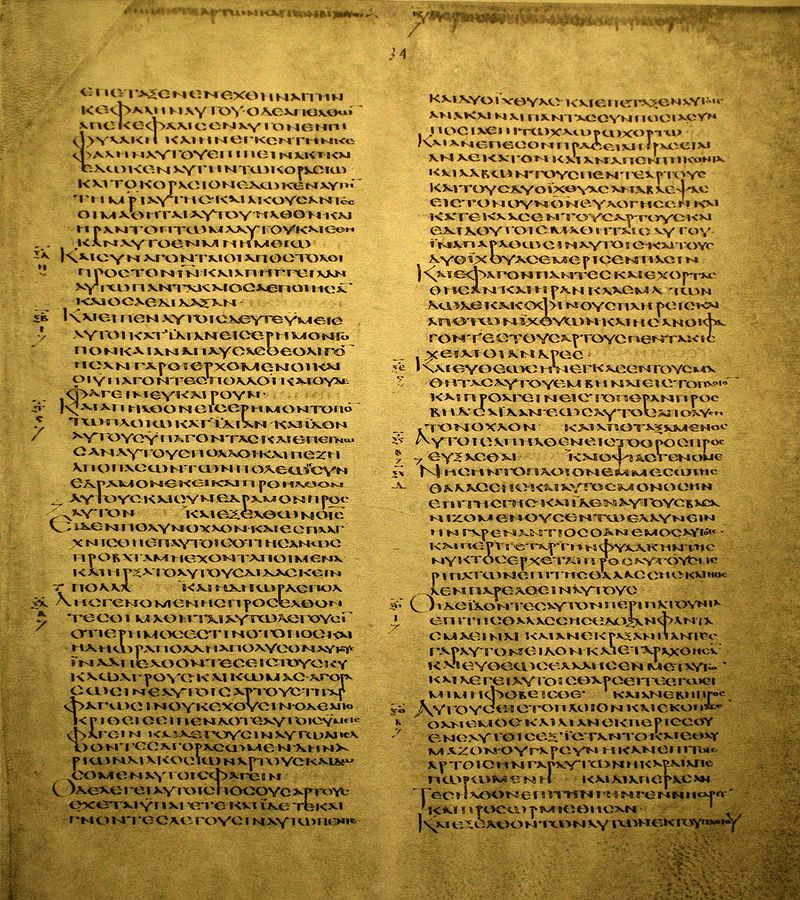 34
ΕΠΕΤΑΞΕΝΕΝΕΧΘΗΝΑΙΤΗΝ
ΚΕΦΑΛΗΝΑΥΤΟΥ·ΟΔΕΑΠΕΛΘΩ̅
ΑΠΕΚΕΦΑΛΙCΕΝΑΥΤΟΝΕΝΤΗ
ΦΥΛΑΚΗ ΚΑΙΗΝΕΓΚΕΝΤΗΝΚΕ
ΦΑΛΗΝΑΥΤΟΥΕΠΙΠΙΝΑΚΙΚΑΙ
ΕΔΩΚΕΝΑΥΤΗΝΤΩΚΟΡΑCΙΩ
ΚΑΙΤΟΚΟΡΑCΙΟΝΕΔΩΚΕΝΑΥΤΗ̅
ΤΗΜΡΙΑΥΤΗCΚΑΙΑΚΟΥCΑΝΤΕC
ΟΙΜΑΘΗΤΑΙΑΥΤΟΥΗΛΘΟΝΚΑΙ
ΗΡΑΝΤΟΠΤΩΜΑΑΥΤΟΥΚΑΙΕΘΗ
ΚΑΝΑΥΤΟΕΝΜΝΗΜΕΙΩ·
ΚΑΙCΥΝΑΓΟΝΤΑΙΟΙΑΠΟCΤΟΛΟΙ
ΠΡΟCΤΟΝΙ̅Ν̅ΚΑΙΑΠΗΓΓΕΙΛΑΝ
ΑΥΤΩΠΑΝΤΑΚΑΙΟCΑΕΠΟΙΗCΑ̅
ΚΑΙΟCΑΕΔΙΔΑΞΑΝ·
ΚΑΙΕΙΠΕΝΑΥΤΟΙCΔΕΥΤΕΫΜΕΙC
ΑΥΤΟΙΚΑΤΪΔΙΑΝΕΙCΕΡΗΜΟΝΤΟ
ΠΟΝΚΑΙΑΝΑΠΑΥCΑCΘΕΟΛΙΓΟ̅
ΗCΑΝΓΑΡΟΙΕΡΧΟΜΕΝΟΙΚΑΙ
ΟΙΫΠΑΓΟΝΤΕCΠΟΛΛΟΙΚΑΙΟΥΔΕ
ΦΑΓΕΙΝΕΥΚΑΙΡΟΥΝ·
ΚΑΙΑΠΗΛΘΟΝΕΙCΕΡΗΜΟΝΤΟΠΟ̅
ΤΩΠΛΟΙΩΚΑΤΪΔΙΑΝ·ΚΑΙΙΔΟΝ
ΑΥΤΟΥCΫΠΑΓΟΝΤΑCΚΑΙΕΠΕΓΝΩ
CΑΝΑΥΤΟΥCΠΟΛΛΟΙΚΑΙΠΕΖΗ
ΑΠΟΠΑCΩΝΤΩΝΠΟΛΕΩΝCΥΝ
ΕΔΡΑΜΟΝΕΚΕΙΚΑΙΠΡΟΗΛΘΟΝ
ΑΥΤΟΥCΚΑΙCΥΝΕΔΡΑΜΟΝΠΡΟC
ΑΥΤΟΝ ΚΑΙΕΞΕΛΘΩΝΟΙ̅C̅
ΕΙΔΕΝΠΟΛΥΝΟΧΛΟΝ·ΚΑΙΕCΠΛΑΓ
ΧΝΙCΘΗΕΠΑΥΤΟΙCΟΤΙΗCΑΝΩC
ΠΡΟΒΑΤΑΜΗΕΧΟΝΤΑΠΟΙΜΕΝΑ
ΚΑΙΗΡΞΑΤΟΑΥΤΟΥCΔΙΔΑCΚΕΙΝ
ΠΟΛΛΑ· ΚΑΙΗΔΗΩΡΑCΠΟΛ
ΛΗCΓΕΝΟΜΕΝΗCΠΡΟCΕΛΘΟΝ
ΤΕCΟΙΜΑΘΗΤΑΙΑΥΤΩΛΕΓΟΥCΪ
ΟΤΙΕΡΗΜΟCΕCΤΙΝΟΤΟΠΟCΚΑΙ
ΗΔΗΩΡΑΠΟΛΛΗΑΠΟΛΥCΟΝΑΥΤΟΥC
ΪΝΑΑΠΕΛΘΟΝΤΕCΕΙCΤΟΥCΚΥ
ΚΛΩΑΓΡΟΥCΚΑΙΚΩΜΑCΑΓΟΡΑ
CΩCΙΝΕΑΥΤΟΙCΑΡΤΟΥCΤΙΓΑΡ
ΦΑΓΩCΙΝΟΥΚΕΧΟΥCΙΝ·ΟΔΕΑΠΟ
ΚΡΙΘΕΙCΕΙΠΕΝΔΟΤΕΑΥΤΟΙCΫΜΕΙC
ΦΑΓΕΙΝ ΚΑΙΛΕΓΟΥCΙΝΑΥΤΩΑΠΕΛ
ΘΟΝΤΕCΑΓΟΡΑCΩΜΕΝΔΗΝΑ
ΡΙΩΝΔΙΑΚΟCΙΩΝΑΡΤΟΥCΚΑΙΔΩ
CΟΜΕΝΑΥΤΟΙCΦΑΓΕΙΝ
ΟΔΕΛΕΓΕΙΑΥΤΟΙCΠΟCΟΥCΑΡΤΟΥC
ΕΧΕΤΑΙΫΠΑΓΕΤΕΚΑΙΪΔΕΤΕΚΑΙ
ΓΝΟΝΤΕCΛΕΓΟΥCΙΝΑΥΤΩΠΕΝΤΕ
ΚΑΙΔΥΟΪΧΘΥΑC·ΚΑΙΕΠΕΤΑΞΕΝΑΥΤΟΙC
ΑΝΑΚΛΙΝΑΙΠΑΝΤΑCCΥΝΠΟCΙΑCΥΝ
ΠΟCΙΑΕΠΙΤΩΧΛΩΡΩΧΟΡΤΩ
ΚΑΙΑΝΕΠΕCΟΝΠΡΑCΕΙΑΙΠΡΑCΕΙΑΙ
ΑΝΑΕΚΑΤΟΝΚΑΙΑΝΑΠΕΝΤΗΚΟΝΤΑ
ΚΑΙΛΑΒΩΝΤΟΥCΠΕΝΤΕΑΡΤΟΥC
ΚΑΙΤΟΥCΔΥΟΪΧΘΥΑCΑΝΑΒΛΕΨΑC
ΕΙCΤΟΝΟΥΝΟΝΕΥΛΟΓΗCΕΝΚΑΙ
ΚΑΤΕΚΛΑCΕΝΤΟΥCΑΡΤΟΥCΚΑΙ
ΕΔΙΔΟΥΤΟΙCΜΑΘΗΤΑΙCΑΥΤΟΥ
ΪΝΑΠΑΡΑΘΩCΙΝΑΥΤΟΙC·ΚΑΙΤΟΥC
ΔΥΟΪΧΘΥΑCΕΜΕΡΙCΕΝΠΑCΙΝ
ΚΑΙΕΦΑΓΟΝΠΑΝΤΕCΚΑΙΕΧΟΡΤΑC
ΘΗCΑΝΚΑΙΗΡΑΝΚΛΑCΜΑΤΩΝ
ΔΩΔΕΚΑΚΟΦΙΝΟΥCΠΛΗΡΕΙCΚΑΙ
ΑΠΟΤΩΝΪΧΘΥΩΝΚΑΙΗCΑΝΟΙΦΑ
ΓΟΝΤΕCΤΟΥCΑΡΤΟΥCΠΕΝΤΑΚΙC
ΧΕΙΛΙΟΙΑΝΔΡΕC·
ΚΑΙΕΥΘΕΩCΗΝΕΓΚΑCΕΝΤΟΥCΜΑ
ΘΗΤΑCΑΥΤΟΥΕΜΒΗΝΑΙΕΙCΤΟΠΛΟΙΟ̅
ΚΑΙΠΡΟΑΓΕΙΝΕΙCΤΟΠΕΡΑΝΠΡΟC
ΒΗΔCΑΪΔΑΝΕΩCΑΥΤΟCΑΠΟΛΥCΗ
ΤΟΝΟΧΛΟΝ ΚΑΙΑΠΟΤΑΞΑΜΕΝΟC
ΑΥΤΟΙCΑΠΗΛΘΕΝΕΙCΤΟΟΡΟCΠΡΟC
ΕΥΞΑCΘΑΙ ΚΑΙΟΨΙΑCΓΕΝΟΜΕ
ΝΗCΗΝΤΟΠΛΟΙΟΝΕΜΜΕCΩΤΗC
ΘΑΛΑCCΗCΚΑΙΑΥΤΟCΜΟΝΟCΗΝ
ΕΠΙΤΗCΓΗCΚΑΙΪΔΕΝΑΥΤΟΥCΒΑCΑ
ΝΙΖΟΜΕΝΟΥCΕΝΤΩΕΛΑΥΝΕΙΝ
ΗΝΓΑΡΕΝΑΝΤΙΟCΟΑΝΕΜΟCΑΥΤΟΙC
ΚΑΙΠΕΡΙΤΕΤΑΡΤΗΝΦΥΛΑΚΗΝΤΗC
ΝΥΚΤΟCΕΡΧΕΤΑΙΠΡΟCΑΥΤΟΥCΠΕ
ΡΙΠΑΤΩΝΕΠΙΤΗCΘΑΛΑCCΗCΚΑΙΗΘΕ
ΛΕΝΠΑΡΕΛΘΕΙΝΑΥΤΟΥC
ΟΙΔΕΪΔΟΝΤΕCΑΥΤΟΝΠΕΡΙΠΑΤΟΥΝΤΑ
ΕΠΙΤΗCΘΑΛΑCCΗCΕΔΟΞΑΝΦΑΝΤΑ
CΜΑΕΙΝΑΙ ΚΑΙΑΝΕΚΡΑΞΑΝΠΑΝΤΕC
ΓΑΡΑΥΤΟΝΕΙΔΟΝΚΑΙΕΤΑΡΑΧΘΗCΑ̅
ΚΑΙΕΥΘΕΩCΕΛΑΛΗCΕΝΜΕΤΑΥΤΩ̅
ΚΑΙΛΕΓΕΙΑΥΤΟΙCΘΑΡCΕΙΤΕΕΓΩΕΙ
ΜΙΜΗΦΟΒΕΙCΘΕ· ΚΑΙΑΝΕΒΗΠΡΟC
ΑΥΤΟΥCΕΙCΤΟΠΛΟΙΟΝΚΑΙΕΚΟΠΑCΕ̅
ΟΑΝΕΜΟCΚΑΙΛΙΑΝΕΚΠΕΡΙCCΟΥ
ΕΝΕΑΥΤΟΙCΕΞΪCΤΑΝΤΟΚΑΙΕΘΑΥ
ΜΑΖΟΝ·ΟΥΓΑΡCΥΝΗΚΑΝΕΠΙΤΟΙC
ΑΡΤΟΙCΗΝΓΑΡΑΥΤΩΝΗΚΑΡΔΙΑΠΕ
ΠΩΡΩΜΕΝΗ ΚΑΙΔΙΑΠΕΡΑCΑΝ
ΤΕCΗΛΘΟΝΕΠΙΤΗΝΓΗΝΓΕΝΝΗCΑΡΕΤ
ΚΑΙΠΡΟCΩΡΜΙCΘΗCΑΝ·
ΚΑΙΕΞΕΛΘΟΝΤΩΝΑΥΤΩΝΕΚΤΟΥΠΛΟΙΟΥ